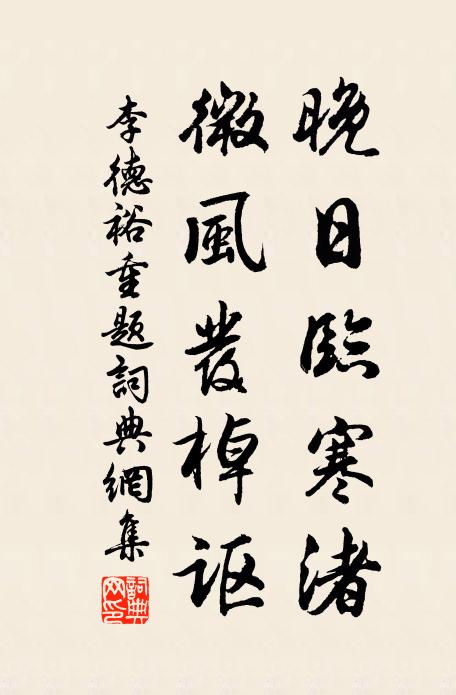 晚日臨寒渚
微風發棹讴
李德裕重題詞典網集
詞典網印